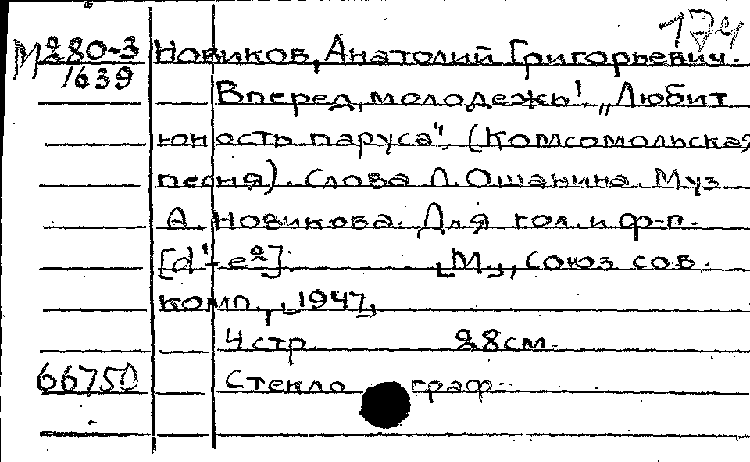 174
М 280-3
1639
Новиков, Анатолий Григорьевич.
Вперед, молодежь! „Любит
юность паруса". (Комсомольская
песня). Слова Л. Ошанина. Муз.
А. Новикова. Для гол. и ф-п.
[d¹-e²]. [М.], Союз сов.
комп., [1947]
4 стр. 28 см.
66750
Стеклограф.